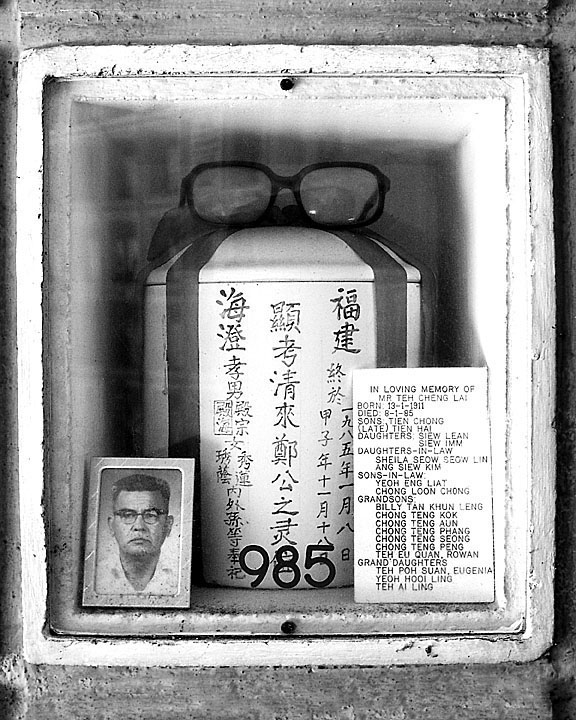 福建
終於
一九八五年一月八日
甲子年十一月十八
顯考清來鄭公之灵
海澄
孝男殿宗
女秀蓮
內外孫等奉祀
985
IN LOVING MEMORY OF
MR TEH CHENG LAI
BORN: 13-1-1911
DIED: 8-1-85
SONS: TIEN CHONG
(LATE) TIEN HAI
DAUGHTERS: SIEW LEAN
SIEW IMM
DAUGHTERS-IN-LAW
SHEILA SEOW SEOW LIN
ANG SIEW KIM
SONS-IN-LAW:
YEOH ENG LIAT
CHONG LOON CHONG
GRANDSONS:
BILLY TAN KHUN LENG
CHONG TENG KOK
CHONG TENG AUN
CHONG TENG PHANG
CHONG TENG SEONG
CHONG TENG PENG
TEH EU QUAN, ROWAN
GRAND DAUGHTERS
TEH POH SUAN, EUGENIA
YEOH HOOI LING
TEH AI LING